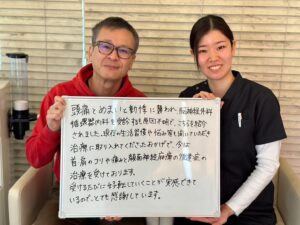 頭痛とめまいと動悸に襲われ、脳神経外科
循環器内科を受診しても原因不明で、こちらを紹介
されました。現在の生活習慣や悩み等も聞いていただき
治療に取り入れてくださったおかげで、今は
首肩のコリや痛みと顔面神経麻痺の後遺症の
治療を受けております。
受けるたびに好転していくことが実感できて
いるので、とても感謝しています。